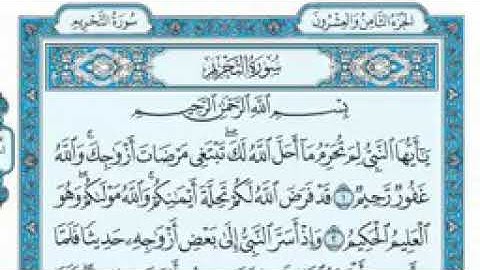 الجزء الثامن والعشرون
سورة التحريم
سُورَةُ التَّحْرِيمِ
بِسْمِ اللَّهِ الرَّحْمَٰنِ الرَّحِيمِ
يَا أَيُّهَا النَّبِيُّ لِمَ تُحَرِّمُ مَا أَحَلَّ اللَّهُ لَكَ ۖ تَبْتَغِي مَرْضَاتَ أَزْوَاجِكَ ۚ وَاللَّهُ
غَفُورٌ رَّحِيمٌ ١ قَدْ فَرَضَ اللَّهُ لَكُمْ تَحِلَّةَ أَيْمَانِكُمْ ۚ وَاللَّهُ مَوْلَاكُمْ ۖ وَهُوَ
الْعَلِيمُ الْحَكِيمُ ٢ وَإِذْ أَسَرَّ النَّبِيُّ إِلَىٰ بَعْضِ أَزْوَاجِهِ حَدِيثًا فَلَمَّا